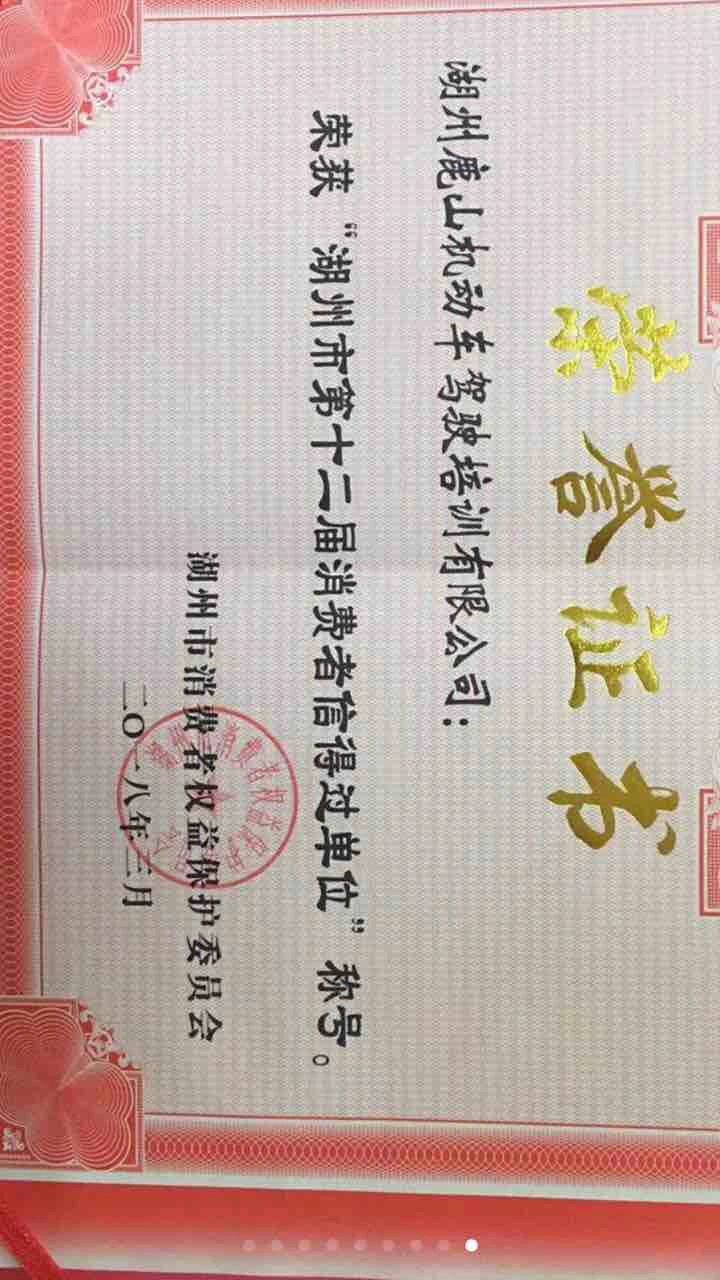 荣誉证书
湖州鹿山机动车驾驶培训有限公司：
荣获“湖州市第十二届消费者信得过单位”称号。
湖州市消费者权益保护委员会
二〇一八年三月